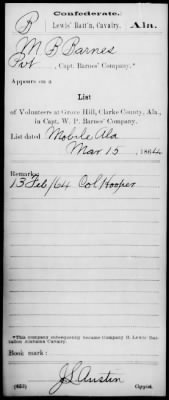 Confederate.
B Lewis' Batt'n, Cavalry. Ala.
M B Barnes
Pvt, Capt. Barnes' Company.*
Appears on a
List
of Volunteers at Grove Hill, Clarke County, Ala.,
in Capt. W. P. Barnes' Company.
List dated Mobile Ala
Mar 15, 1864
Remarks:
13 Feb/64 Col. Hooper
*This company subsequently became Company B Lewis' Bat-
talion Alabama Cavalry.
Book mark:
J L Austin
(653) Copyist.